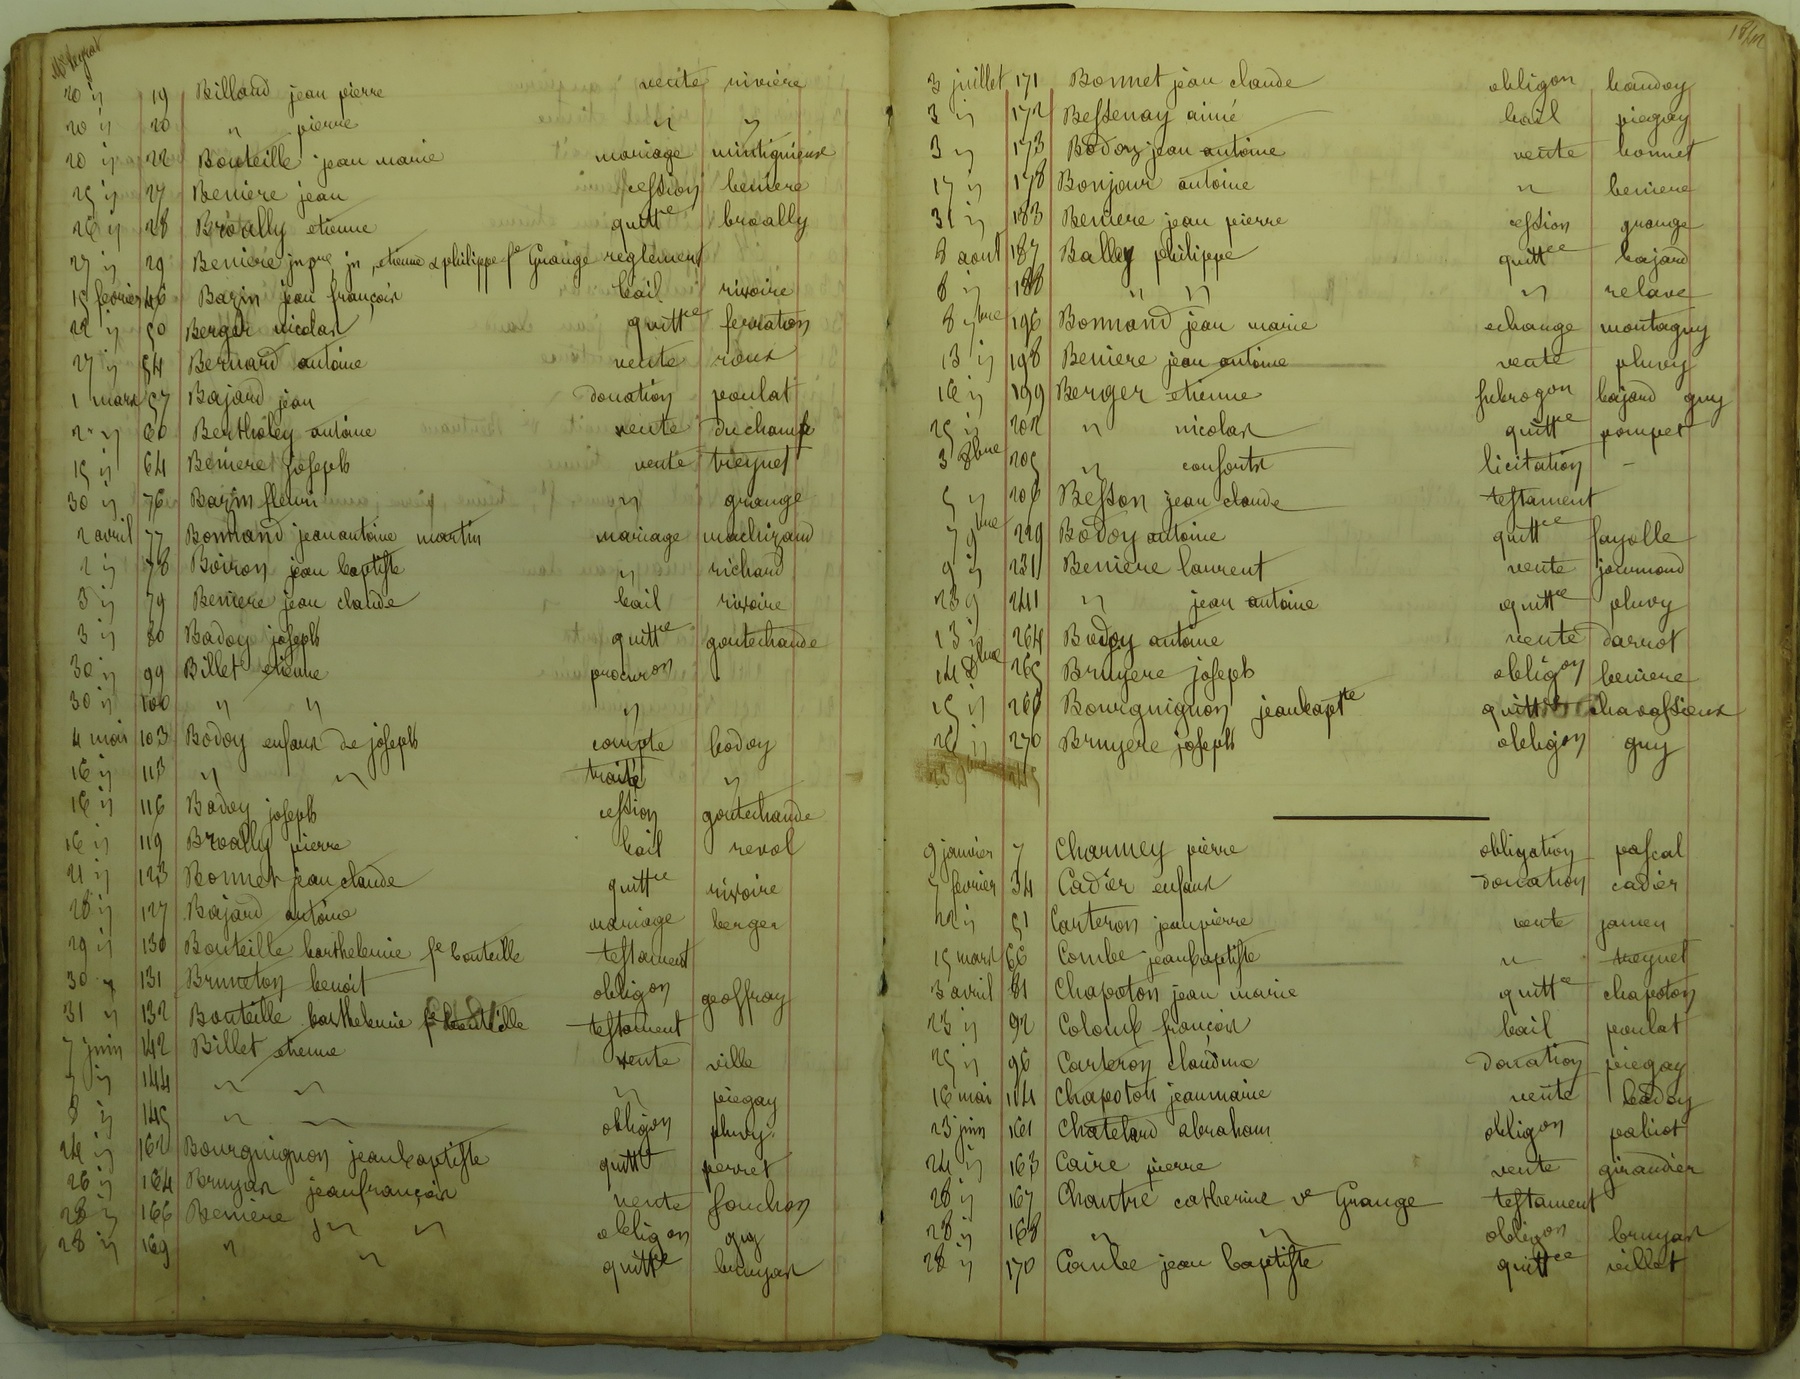 20 " 19 Billard jean pierre vente riviére
20 " 20 " pierre " "
20 " 22 Bouteille jean marie mariage
25 " 27 Beniere jean cession beniere
26 " 28 Broally etienne quittce broally
27 " 29 Beniére jn pre, jn, etienne & philippe fe Grange reglement
15 fevrier 46 Bazin jean françois bail rivoire
22 " 50 Berger nicolas quittce ferraton
27 " 54 Bernard antoine vente roux
1 mars 57 Bajard jean donation poulat
2 " 60 Bertholey antoine vente duchamp
15 " 64 Beniere joseph vente treynet
30 " 76 Bazin fleuri " grange
2 avril 77 Bonnand jean antoine martin mariage machizaud
2 " 78 Boiron jean baptiste " richard
3 " 79 Beniere jean claude bail rivoire
3 " 80 Badoy joseph quittce goutechaude
30 " 99 Billet etienne procuron
30 " 100 " " "
4 mai 103 Bodoy enfans de joseph compte bodoy
16 " 113 " " traité "
16 " 116 Bodoy joseph cession goutechaude
16 " 119 Broally pierre bail revol
21 " 123 Bonnet jean claude quittce rivoire
28 " 127 Bajard antoine mariage berger
29 " 130 Bouteille barthelemie fe bouteille testament
30 " 131 Bruneton benoit obligon geoffray
31 " 132 Bouteille barthelemie fe bouteille testament
7 juin 142 Billet etienne vente ville
7 " 144 " " " piegay
8 " 145 " " obligon pluvy
24 " 162 Bourguignon jean baptiste quittce perret
26 " 164 Bruyas jean françois vente fouchon
28 " 166 Beniere j " " obligon guy
28 " 169 " " quittce bruyas
3 juillet 171 Bonnet jean claude obligon baudoy
3 " 172 Bessenay aimé bail piegay
3 " 173 Bodoy jean antoine vente bonnet
17 " 178 Bonjour antoine " beniere
31 " 183 Beniere jean pierre cession grange
8 aout 187 Balley philippe quittce bajard
8 " 188 " " " relave
8 7bre 196 Bonnand jean marie echange montagny
13 " 198 Beniere jean antoine vente pluvy
16 " 199 Berger etienne subrogon bajard guy
25 " 202 " nicolas quittce pompet
3 8bre 205 " consorts licitation -
5 " 206 Besson jean claude testament
7 9bre 229 Bodoy antoine quittce fayolle
9 " 231 Beniere laurent vente journoud
23 9 241 " jean antoine quittce pluvy
13 " 264 Bodoy antoine vente darrot
14 Xbre 265 Bruyere joseph obligon beniere
15 " 266 Bourguignon jean bapte quittce chavassieux
26 " 270 Bruyere joseph obligon guy
9 janvier 7 Charmey pierre obligation pascal
7 fevrier 34 Cadier enfans donation cadier
22 " 51 Carteron jean pierre vente jamen
15 mars 66 Combe jean baptiste " treynet
3 avril 81 Chapoton jean marie quittce chapoton
23 " 92 Colomb françois bail poulat
25 " 96 Carteron claudine donation piegay
16 mai 114 Chapoton jean marie vente badoy
23 juin 161 Chatelard abraham obligon pabiot
24 " 163 Caire pierre vente giraudier
28 " 167 Chantre catherine ve Grange testament
28 " 168 " " obligon bruyas
28 " 170 Combe jean baptiste quittce villet